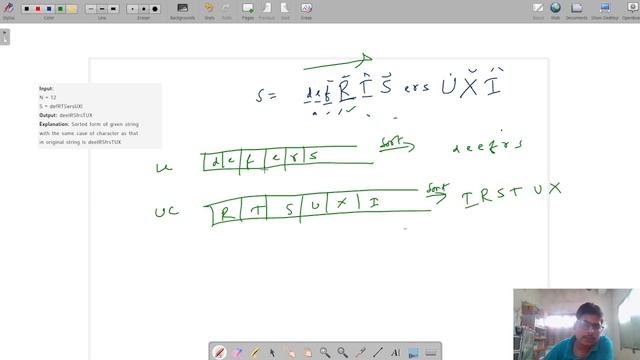 Stylus
Color
Line
Eraser
Backgrounds
Undo
Redo
Web
Documents
Show Desktop
Openboard
Input:
N = 12
S = defRTSersUXI
Output: deeIRSfrsTUX
Explanation: Sorted form of given string
with the same case of character as that
in original string is deeIRSfrsTUX
S = def R T S ers U X I
LC d e f e r s sort d e e f r s
UC R T S U X I sort I R S T U X